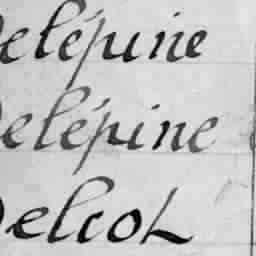 Delépine
Delépine
Delcol